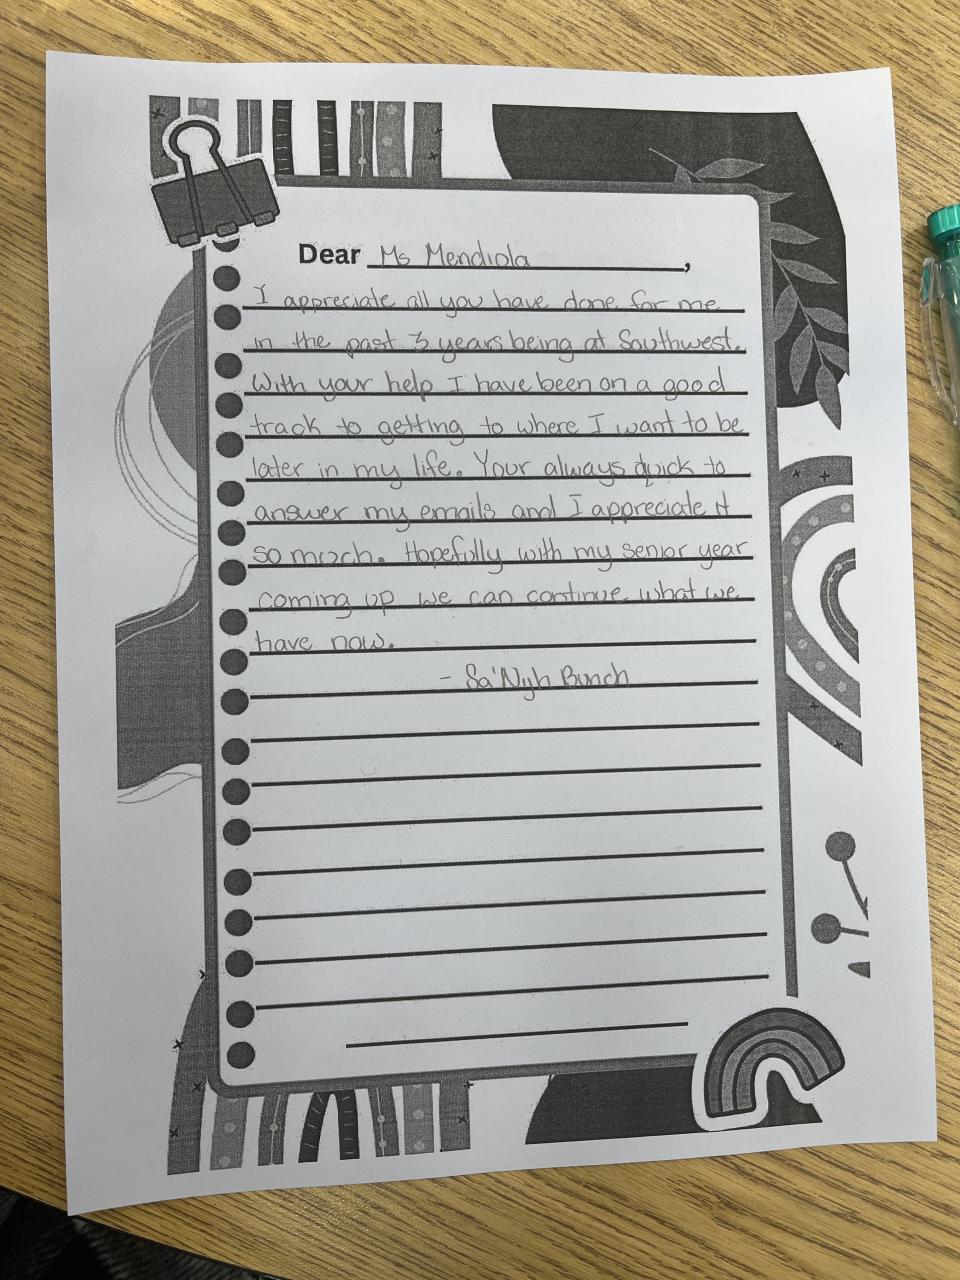 Dear Ms Mendiola,
I appreciate all you have done for me
in the past 3 years being at Southwest.
With your help I have been on a good
track to getting to where I want to be
later in my life. Your always quick to
answer my emails and I appreciate it
so much. Hopefully with my senior year
coming up we can continue what we
have now.
- Sa'Nyh Bunch